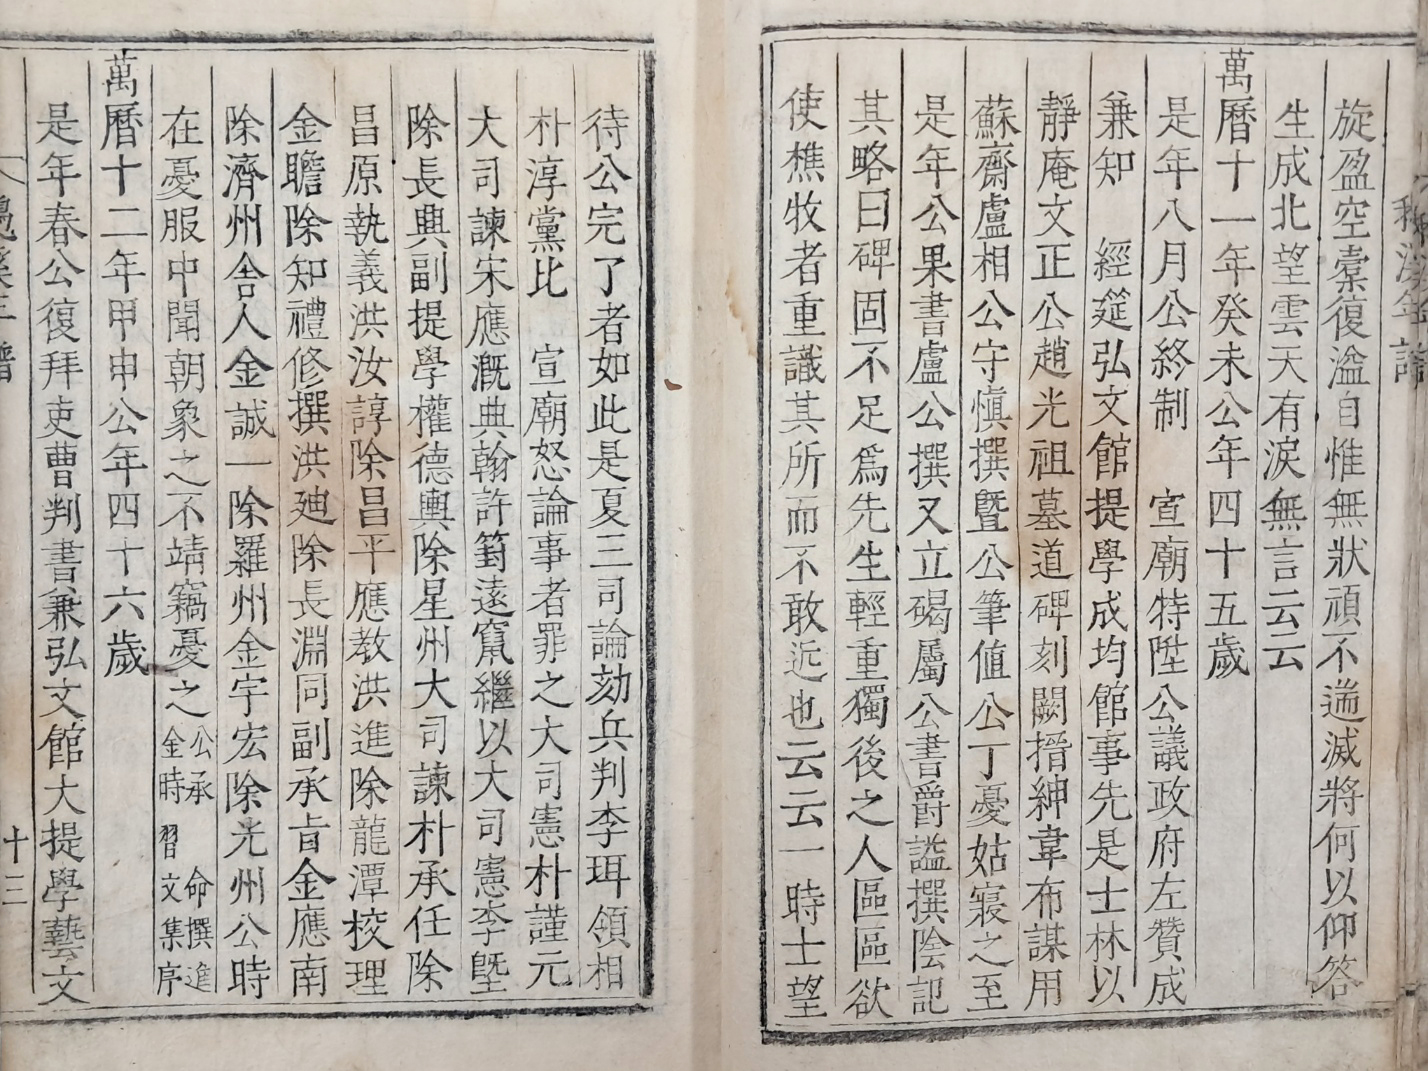 旋盈空橐復溢自惟無狀頑不遄滅將何以仰答
生成北望雲天有淚無言云云
萬曆十一年癸未公年四十五歲
是年八月公終制 宣廟特陞公議政府左贊成
兼知 經筵弘文館提學成均館事先是士林以
靜庵文正公趙光祖墓道碑刻闕搢紳韋布謀用
蘇齋盧相公守愼撰曁公筆値公丁憂姑寢之至
是年公果書盧公撰又立碣屬公書爵諡撰陰記
其略曰碑固不足爲先生輕重獨後之人區區欲
使樵牧者重識其所而不敢近也云云一時士望
待公完了者如此是夏三司論劾兵判李珥領相
朴淳黨比 宣廟怒論事者罪之大司憲朴謹元
大司諫宋應漑典翰許篈遠竄繼以大司憲李墍
除長興副提學權德輿除星州大司諫朴承任除
昌原執義洪汝諄除昌平應敎洪進除龍潭校理
金瞻除知禮修撰洪廸除長淵同副承旨金應南
除濟州舍人金誠一除羅州金宇宏除光州公時
在憂服中聞朝象之不靖竊憂之公承 命撰進
金時習文集序
萬曆十二年甲申公年四十六歲
是年春公復拜吏曹判書兼弘文館大提學藝文
年譜
譜
十三